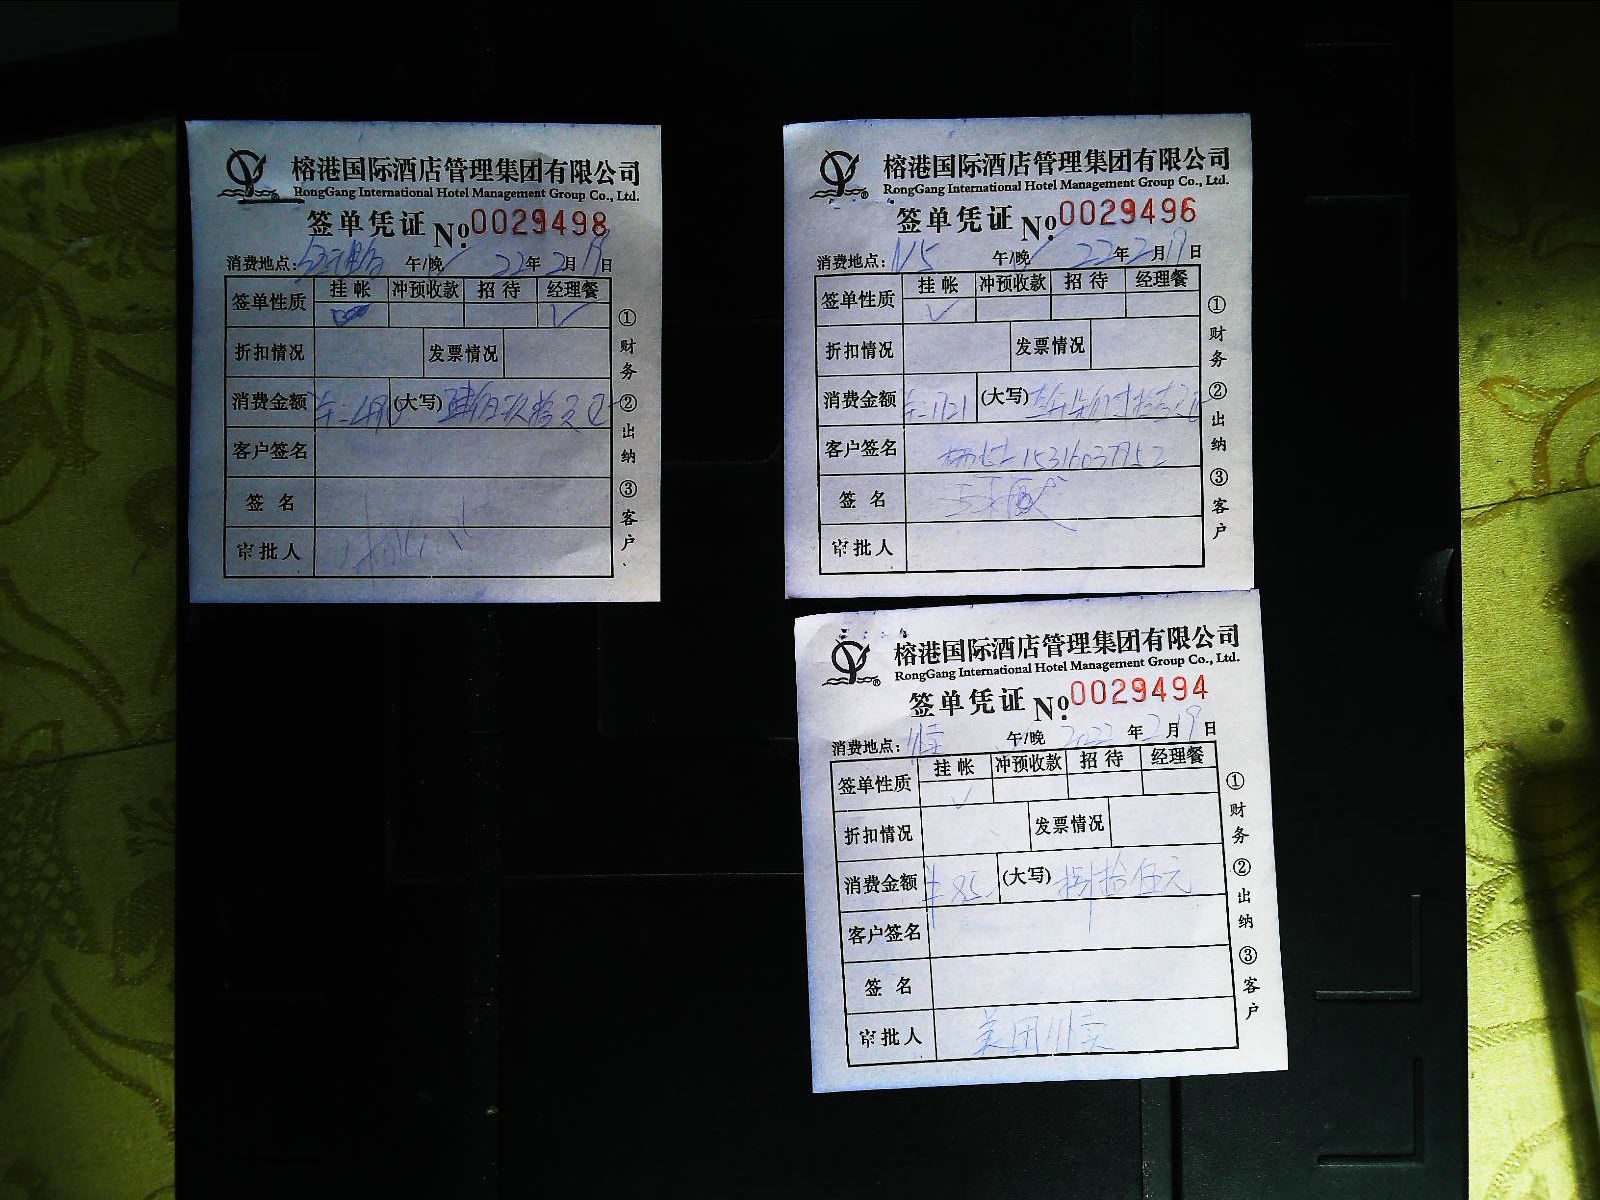 榕港国际酒店管理集团有限公司
RongGang International Hotel Management Group Co., Ltd.
签单凭证 No. 0029498
消费地点： 午/晚 22年2月19日
签单性质 挂帐 冲预收款 招待 经理餐
折扣情况 发票情况
消费金额 (大写)
客户签名
签名
审批人
①财务 ②出纳 ③客户
榕港国际酒店管理集团有限公司
RongGang International Hotel Management Group Co., Ltd.
签单凭证 No. 0029496
消费地点： 午/晚 22年2月19日
签单性质 挂帐 冲预收款 招待 经理餐
折扣情况 发票情况
消费金额 (大写)
客户签名
签名
审批人
①财务 ②出纳 ③客户
榕港国际酒店管理集团有限公司
RongGang International Hotel Management Group Co., Ltd.
签单凭证 No. 0029494
消费地点：外卖 午/晚 2022年2月19日
签单性质 挂帐 冲预收款 招待 经理餐
折扣情况 发票情况
消费金额 ¥:85 (大写) 捌拾伍元
客户签名
签名
审批人 美团外卖
①财务 ②出纳 ③客户